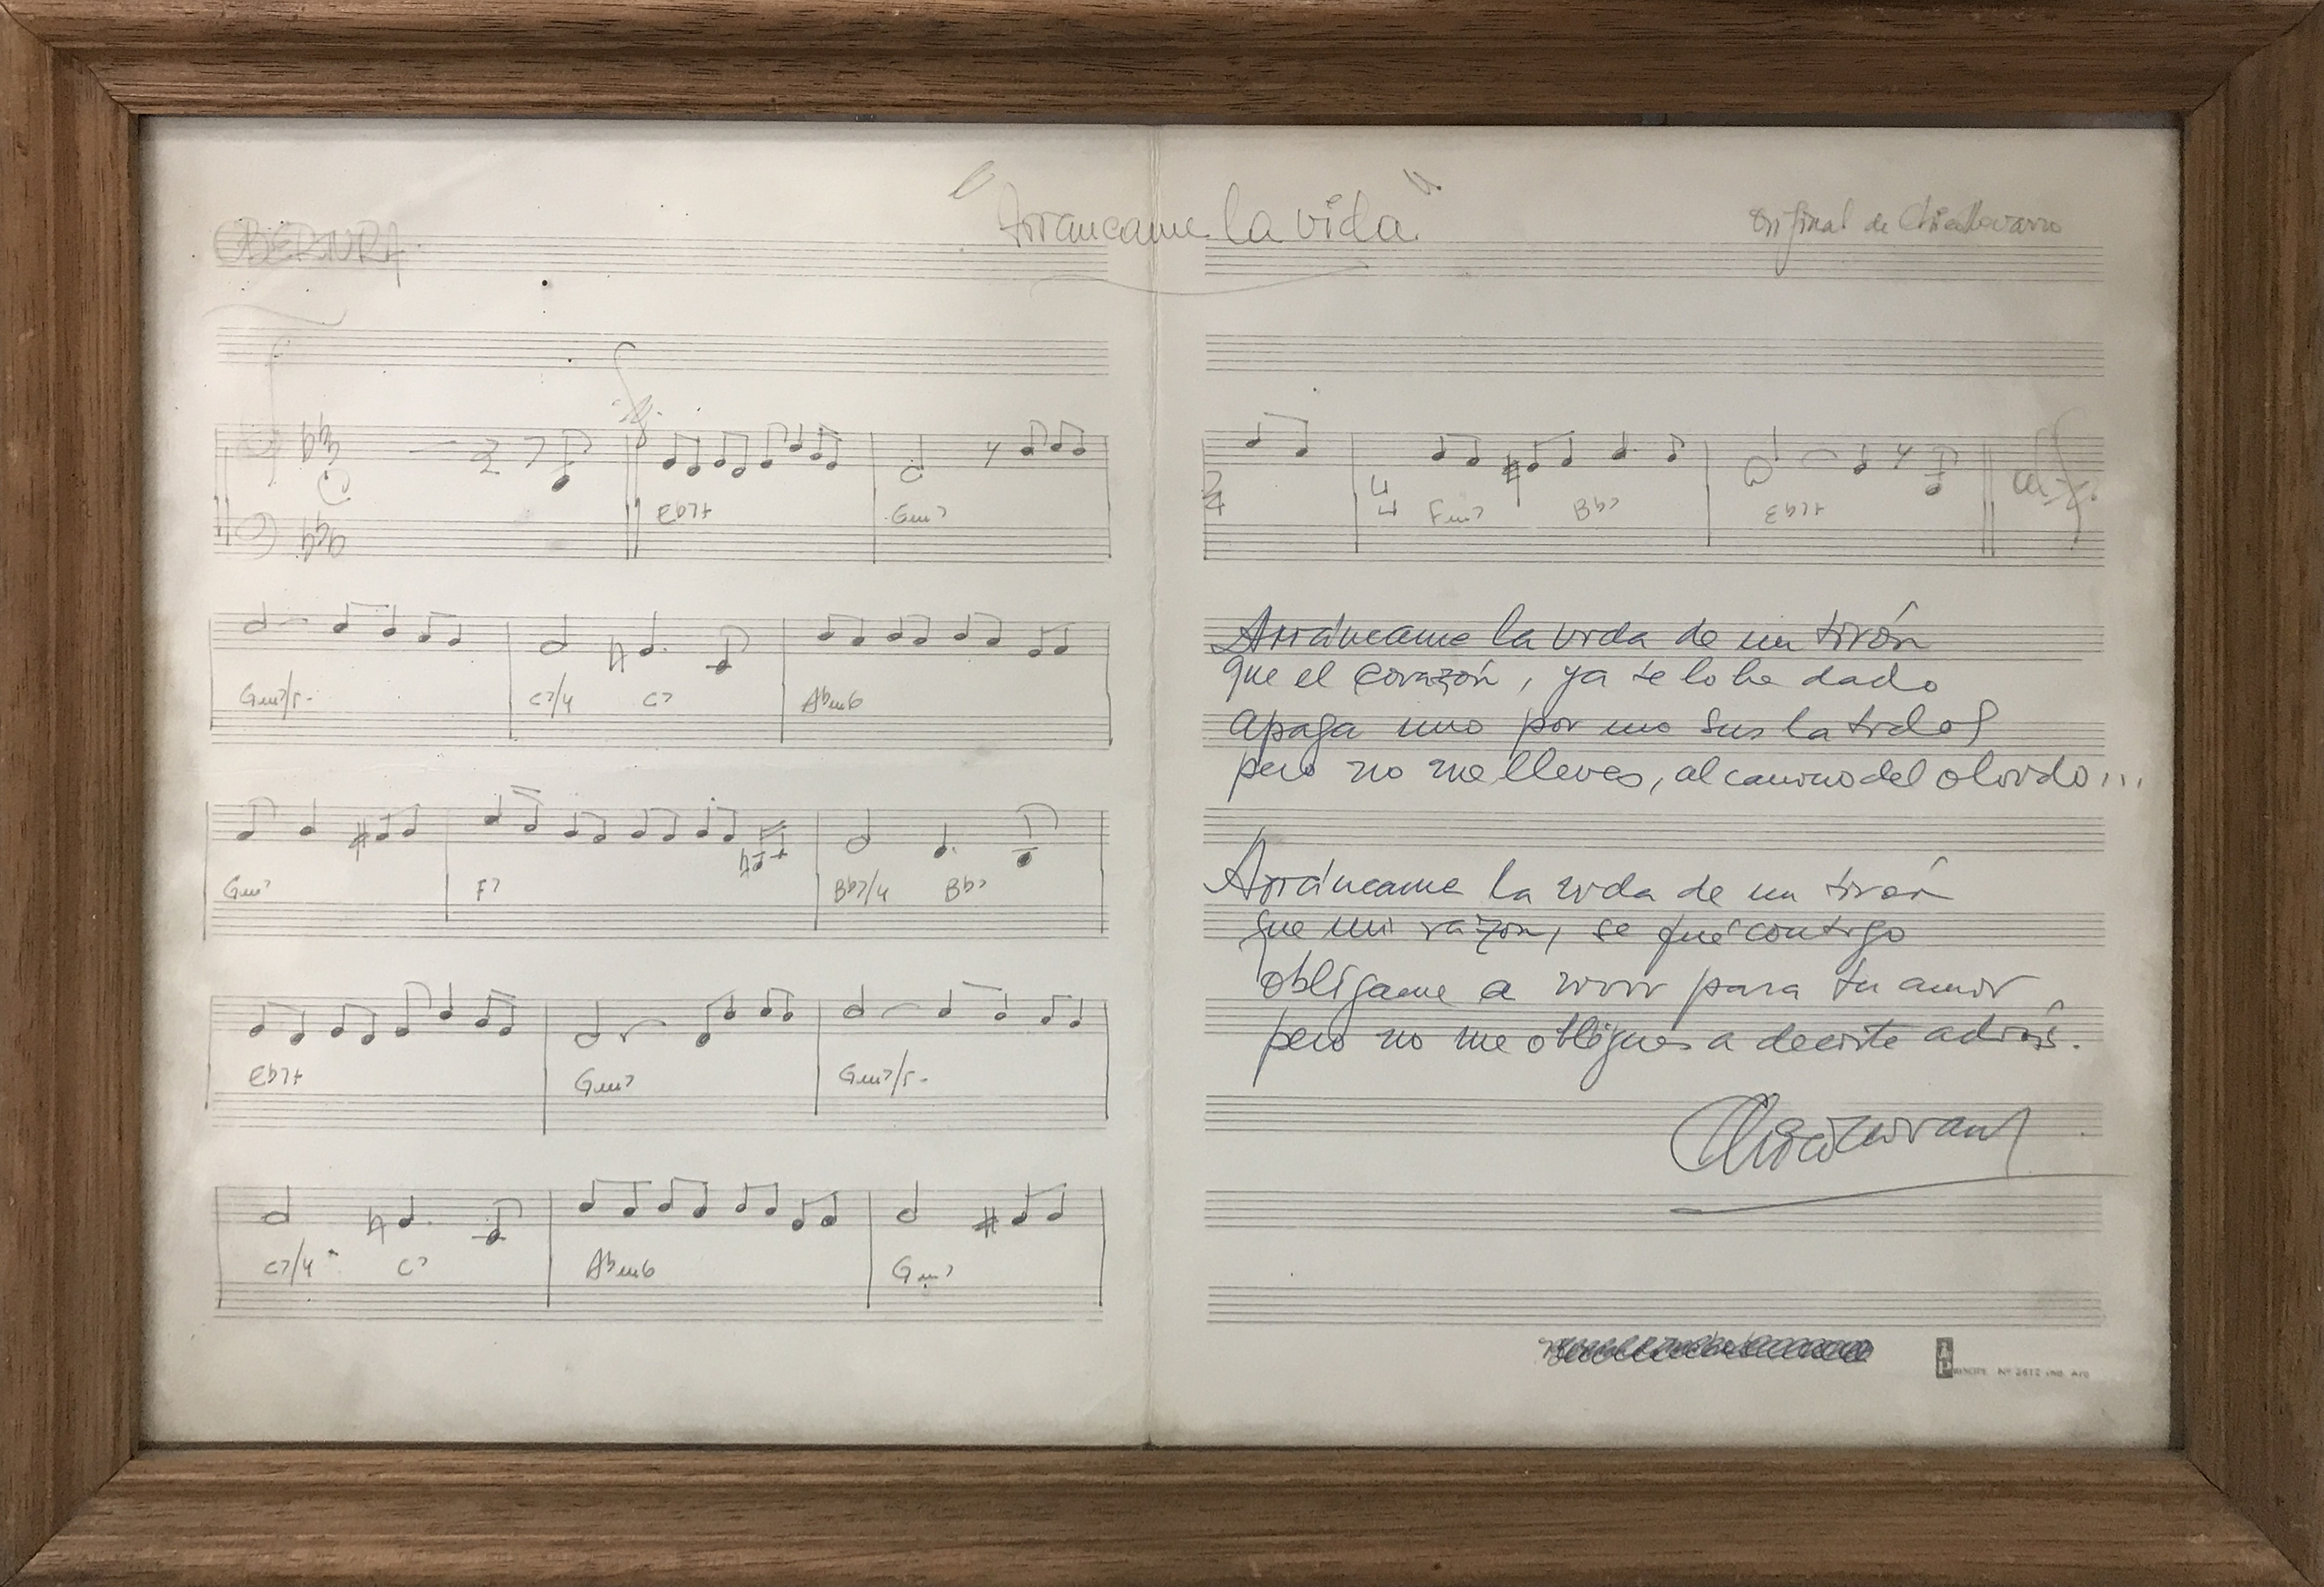 OBERTURA
"Arrancame la vida"
Original de Chico Novarro
Eb7+ Gm7
Gm7/5- C7/4 C7 Abm6
Gm7 F7 Bb7/4 Bb7
Eb7+ Gm7 Gm7/5-
C7/4 C7 Abm6 Gm7
2/4 4/4 Fm7 Bb7 Eb7+
Arráncame la vida de un tirón
que el corazón, ya te lo he dado
apaga uno por uno sus latidos
pero no me lleves, al camino del olvido...
Arráncame la vida de un tirón
que mi razón, se fué contigo
oblígame a vivir para tu amor
pero no me obligues a decirte adiós.
Chico Novarro
PRINCIPE Nº 2612 IND. ARG